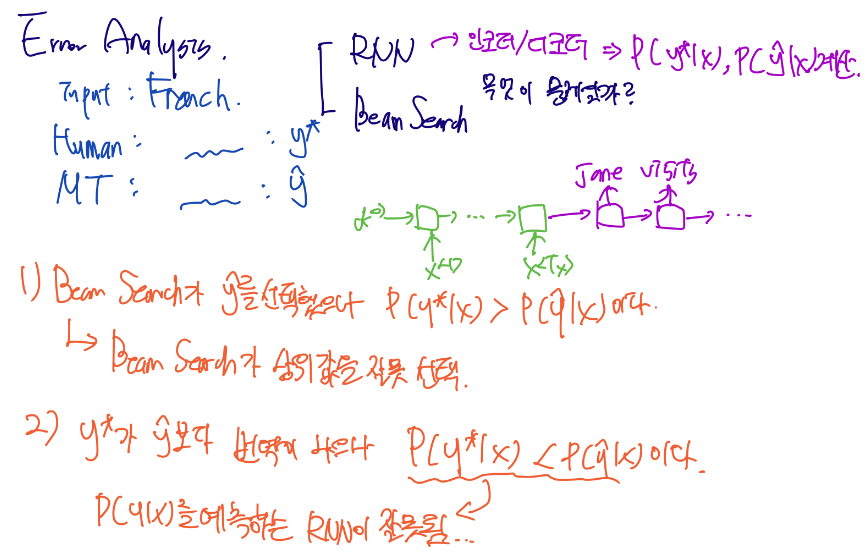 Error Analysis.
RNN → 인코더/디코더 ⇒ P(y*|x), P(ŷ|x)계산.
Input : Franch.
무엇이 틀려졌는가?
Beam Search
Human : ___ : y*
MT : ___ : ŷ
Jane visits
a<0> → □ → ... → □ → □ → □ → ...
x<1> x<Tx>
1) Beam Search가 ŷ를 선택했으나 P(y*|x) > P(ŷ|x) 이다.
↳ Beam Search가 상위값을 잘못 선택.
2) y*가 ŷ보다 번역이 나으나 P(y*|x) < P(ŷ|x) 이다.
P(y|x)를 예측하는 RNN이 잘못됨...